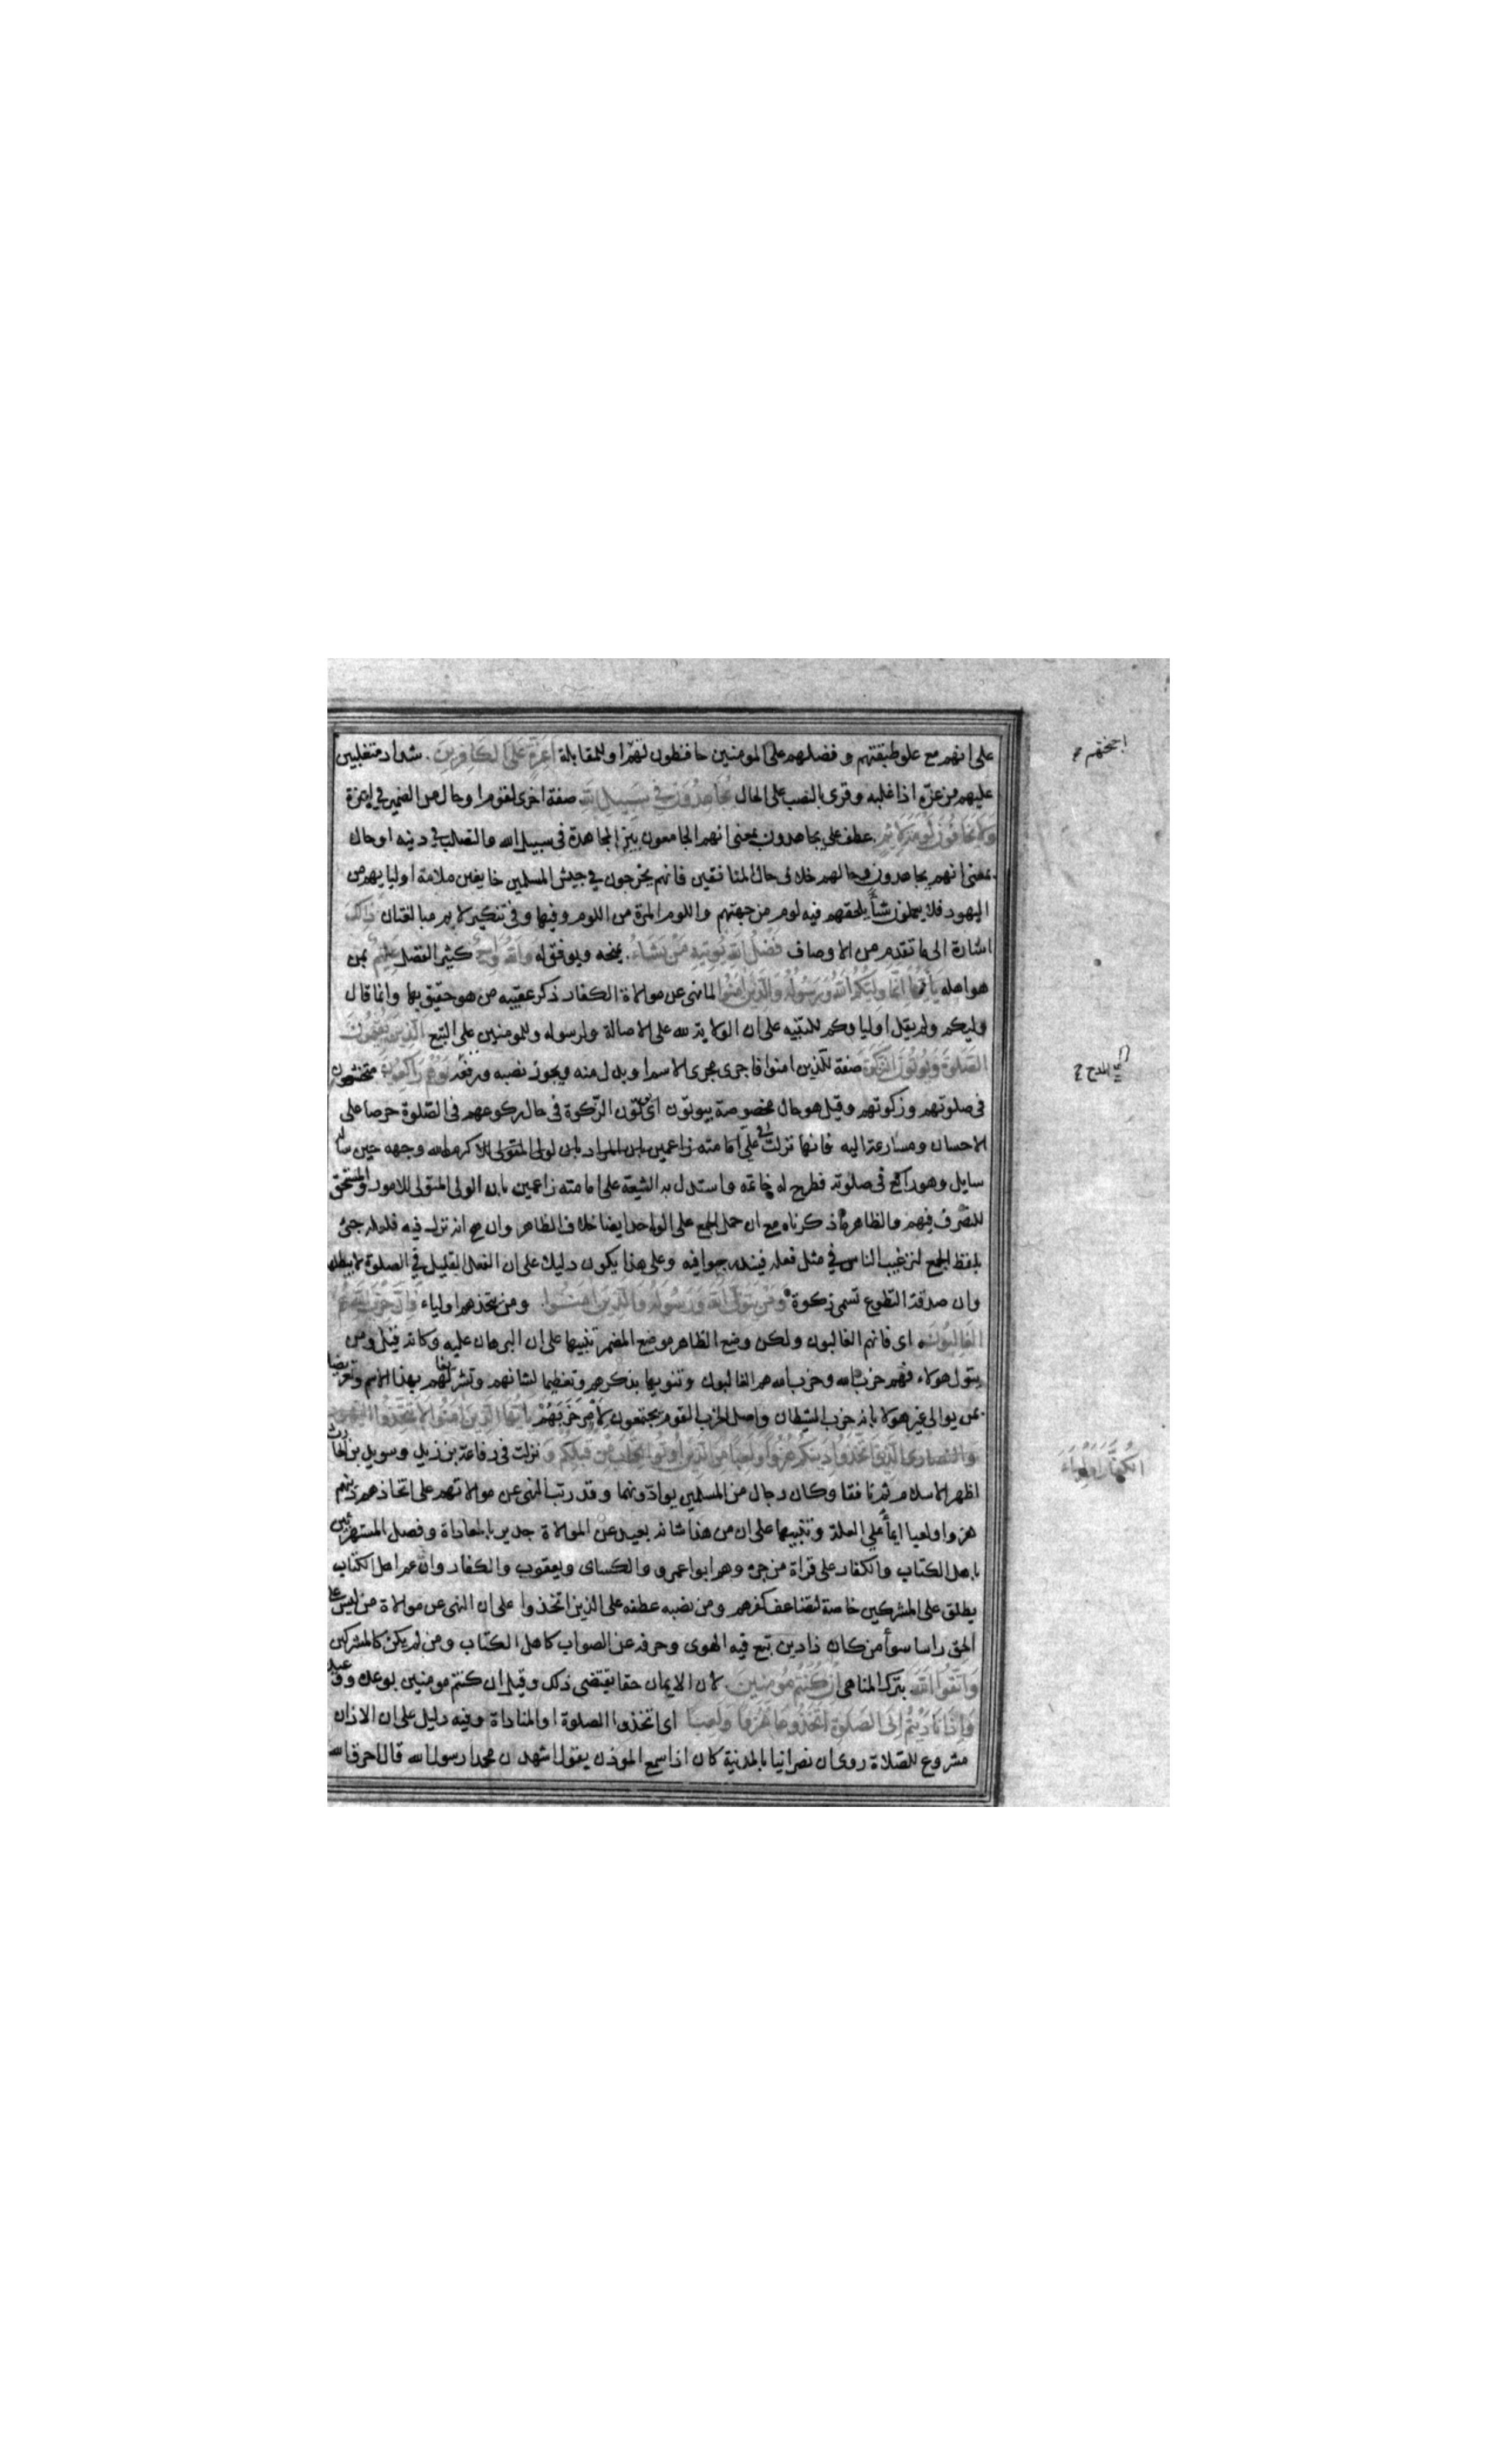 على انهم مع علو طبقتهم و فضلهم على المومنين حافظون لهم او للمقابلة اَعِزَّةٍ عَلَى الكَافِرِينَ شداد متغلبين
اجنحتهم
عليهم من عزه اذا غلبه وقرى بالنصب على الحال يُجَاهِدُونَ فِي سَبِيلِ اللهِ صفة اخرى لقوم او حال من الضمير في اعزة
وَلَا يَخَافُونَ لَوْمَةَ لَائِمٍ عطف على يجاهدون بمعنى انهم الجامعون بين المجاهدة فى سبيل الله والتصلب فى دينه او حال
بمعنى انهم يجاهدون وحالهم خلاف حال المنافقين فانهم يخرجون في جيش المسلمين خايفين ملامة اوليايهم من
اليهود فلا يعملون شيأ يلحقهم فيه لوم من جهتهم واللوم المرة من اللوم وفيها وفى تنكير لايم مبالغتان ذلكَ
اشارة الى ما تقدم من الاوصاف فَضْلُ اللهِ يُوتِيهِ مَنْ يَشَاءُ يمنحه ويوفق له وَاللهُ وَاسِعٌ كثير الفضل عَلِيمٌ بمن
هو اهله اِنَّمَا وَلِيُّكُمُ اللهُ وَرَسُولُهُ وَالَّذِينَ اٰمَنُوا لما نهى عن موالاة الكفار ذكر عقيبه من هو حقيق بها وانما قال
وليكم ولم يقل اولياوكم للتنبيه على ان الولاية لله على الاصالة ولرسوله وللمومنين على التبع الَّذِينَ يُقِيمُونَ
الصَّلٰوةَ وَيُوتُونَ الزَّكٰوةَ صفة للذين امنوا فاجرى مجرى الاسم او بدل منه ويجوز نصبه ورفعه وَهُمْ رَاكِعُونَ متخشعون
المدح
فى صلوتهم وزكوتهم وقيل هو حال مخصوصة بيوتون اى يوتون الزكوة فى حال ركوعهم فى الصلوة حرصا على
الاحسان ومسارعة اليه فانها نزلت في علي امامته زاعمين بان المراد بان لولى المتولى كرم الله وجهه حين ساله
سايل وهو راكع فى صلوته فطرح له خاتمه واستدل به الشيعة على امامته زاعمين بان الولى المتولى للامور والمستحق
للتصرف فيهم والظاهر ما ذكرناه مع ان حمل الجمع على الواحد ايضا خلاف الظاهر وان صح انه نزل فيه فلعله جئ
بلفظ الجمع لترغيب الناس في مثل فعله فيندرجوا فيه وعلى هذا يكون دليل على ان الفعل القليل في الصلوة لا يبطلها
وان صدقة التطوع تسمى زكوة وَمَنْ يَتَوَلَّ اللهَ وَرَسُولَهُ وَالَّذِينَ اٰمَنُوا ومن يتخذهم اولياء فَاِنَّ حِزْبَ اللهِ هُمُ
الغَالِبُونَ اى فانهم الغالبون ولكن وضع الظاهر موضع المضمر تنبيها على ان البرهان عليه وكانه قيل ومن
يتول هولاء فهم حزب الله وحزب الله هم الغالبون وتنويها بذكرهم وتعظيما لشانهم وتشريفا لهم بهذا الاسم وتعريضا
بمن يوالى غير هولا بانه حزب الشيطان واصل الحزب القوم يجتمعون لامر حَزَبَهُمْ يَا اَيُّهَا الَّذِينَ اٰمَنُوا لَا تَتَّخِذُوا اليَهُودَ
وَالنَّصَارَى الَّذِينَ اتَّخَذُوا دِينَكُمْ هُزُوًا وَلَعِبًا مِنَ الَّذِينَ اُوتُوا الكِتَابَ مِنْ قَبْلِكُمْ وَ نزلت فى رفاعة بن زيد وسويد بن الحارث
الكُفَّارَ اَوْلِيَاءَ
اظهر الاسلام ثم نافقا وكان رجال من المسلمين يوادونهما وقد رتب النهى عن موالاتهم على اتخاذهم دينهم
هزوا ولعبا ايماً على العلة وتنبيها على ان من هذا شانه بعيد عن الموالاة جدير بالمعاداة وفصل المستهزئين
باهل الكتاب والكفار على قراة من جره وهم ابو عمرو والكساى ويعقوب والكفار وان عم اهل الكتاب
يطلق على المشركين خاصة لتضاعف كفرهم ومن نصبه عطفه على الذين اتخذوا على ان النهى عن موالاة من ليس على
الحق راسا سوأ من كان ذا دين تبع فيه الهوى وحرفه عن الصواب كاهل الكتاب ومن لم يكن كالمشركين
وَاتَّقُوا اللهَ بترك المناهى اِنْ كُنْتُمْ مُومِنِينَ لان الايمان حقا يقتضى ذلك وقيل ان كنتم مومنين بوعده ووعيده
وَاِذَا نَادَيْتُمْ اِلَى الصَّلٰوةِ اتَّخَذُوهَا هُزُوًا وَلَعِبًا اى اتخذوا الصلوة او المناداة وفيه دليل على ان الاذان
مشروع للصلاة روى ان نصرانيا بالمدينة كان اذا سمع الموذن يقول اشهد ان محمدا رسول الله قال احرق الله